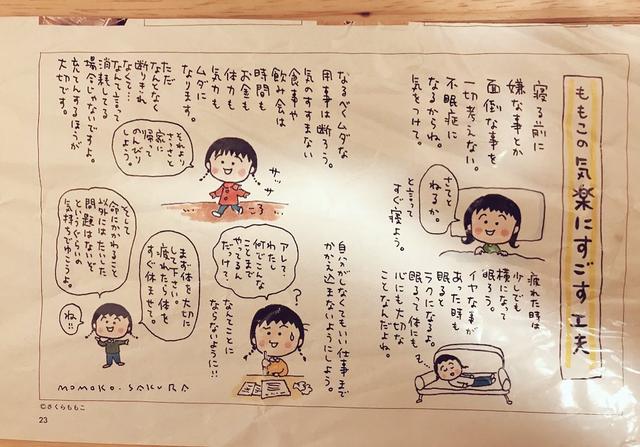 ももこの気楽にすごす工夫
寝る前に
嫌な事とか
面倒な事を
一切考えない。
不眠症に
なるからね。
気をつけて。
さてと
ねるか。
と言って
すぐ寝よう。
疲れた時は
少しでも
横になって
眠ろう。
イヤな事が
あった時も
眠ると
ラクになるよ。
眠るって体にも
心にも大切な
ことなんだよね。
なるべくムダな
用事は断ろう。
気のすすまない
食事や
飲み会は
時間も
お金も
体力も
気力も
ムダに
なります。
ただ
なんとなく
断りきれ
なくて…
なんて言って
消耗してる
場合じゃないですよ。
充てんするほうが
大切です。
それより
さっさと
家に
帰って
のんびり
しよう。
サッ
サッ
自分がしなくてもいい仕事まで
かかえ込まないようにしよう。
アレ?、
わたし
何でこんな
ことまで
やってるん
だっけ?
?
なんてことに
ならないように!!
まず体を大切に
して下さい。
疲れたら体を
すぐ休ませて。
そして
命にかかわること
以外にはたいした
問題はないぞ
というぐらいの
気持ちでゆこうよ。
ね!!
MOMOKO.SAKURA
©さくらももこ
23